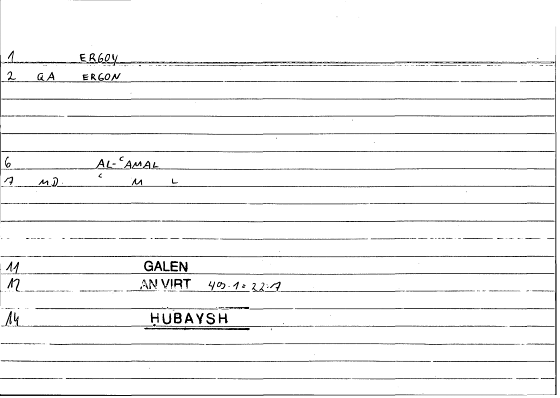 1 ERGOY
2 GA ERGON
6 AL-ʿAMAL
7 MD. ʿ M L
11 GALEN
12 AN VIRT 403.1 = 22.7
14 HUBAYSH